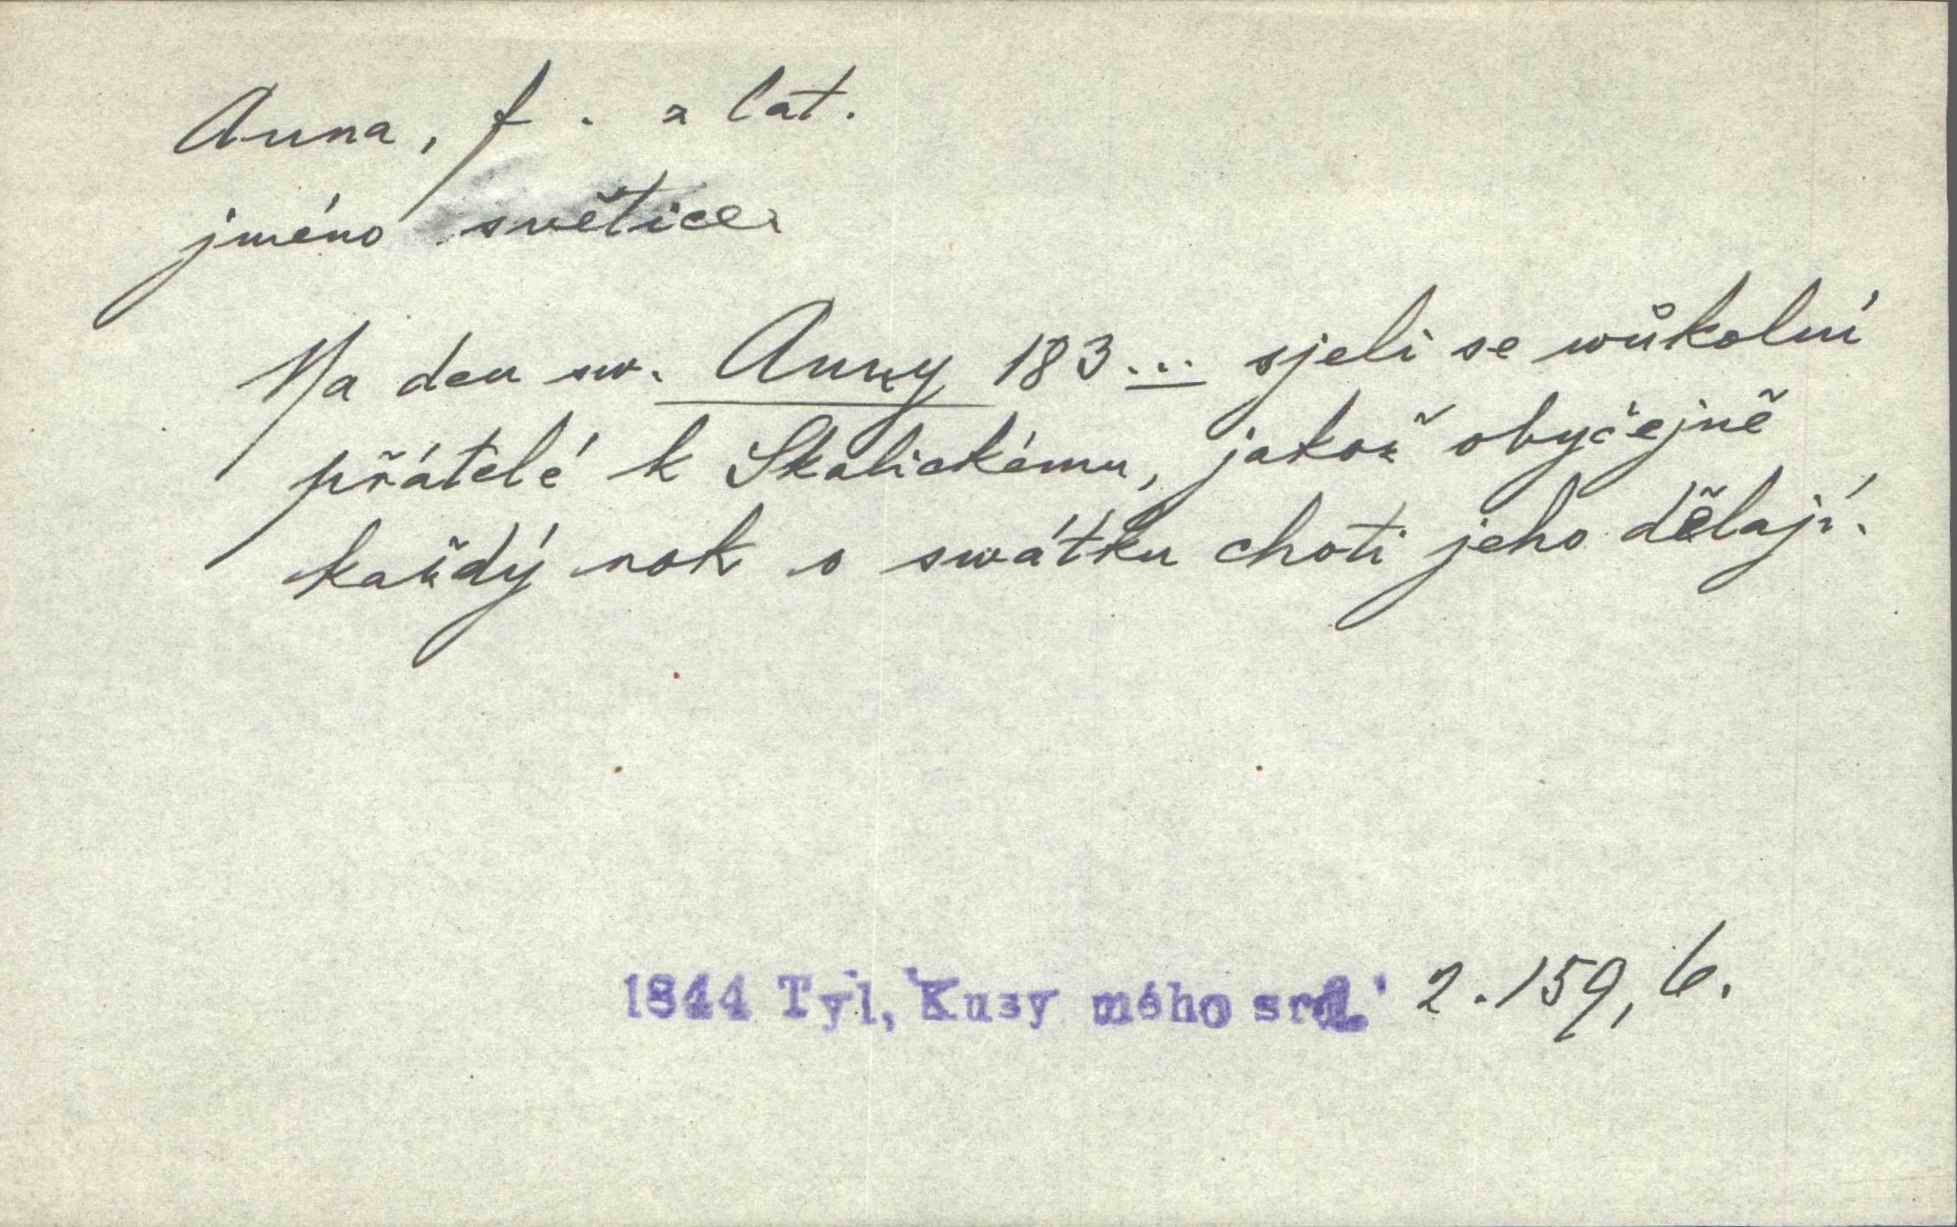 Anna, f. z lat.
jméno světice.
Na den sw. Anny 183... sjeli se wůkolní
přátelé k Skalickému, jakož obyčejně
každý rok o swátku choti jeho dělají.
1844 Tyl, Kusy mého srd. 2.159, 6.